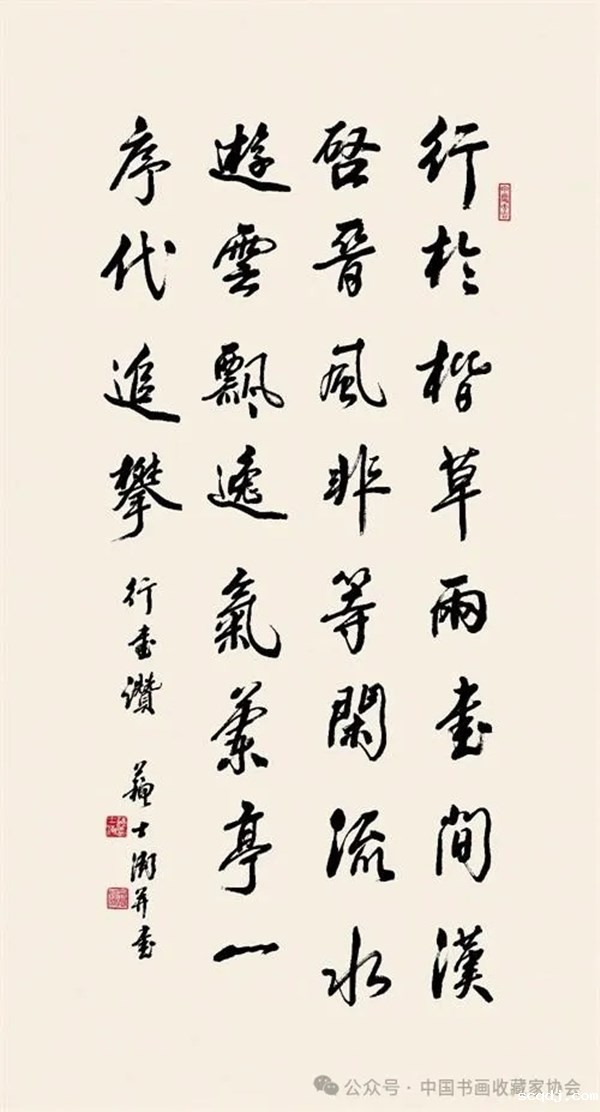 行於楷草兩書間漢
啓晉風非等閑流水
遊雲飄逸氣蘭亭一
序代追攀
行書讚 蘇士澍并書
公众号·中国书画收藏家协会